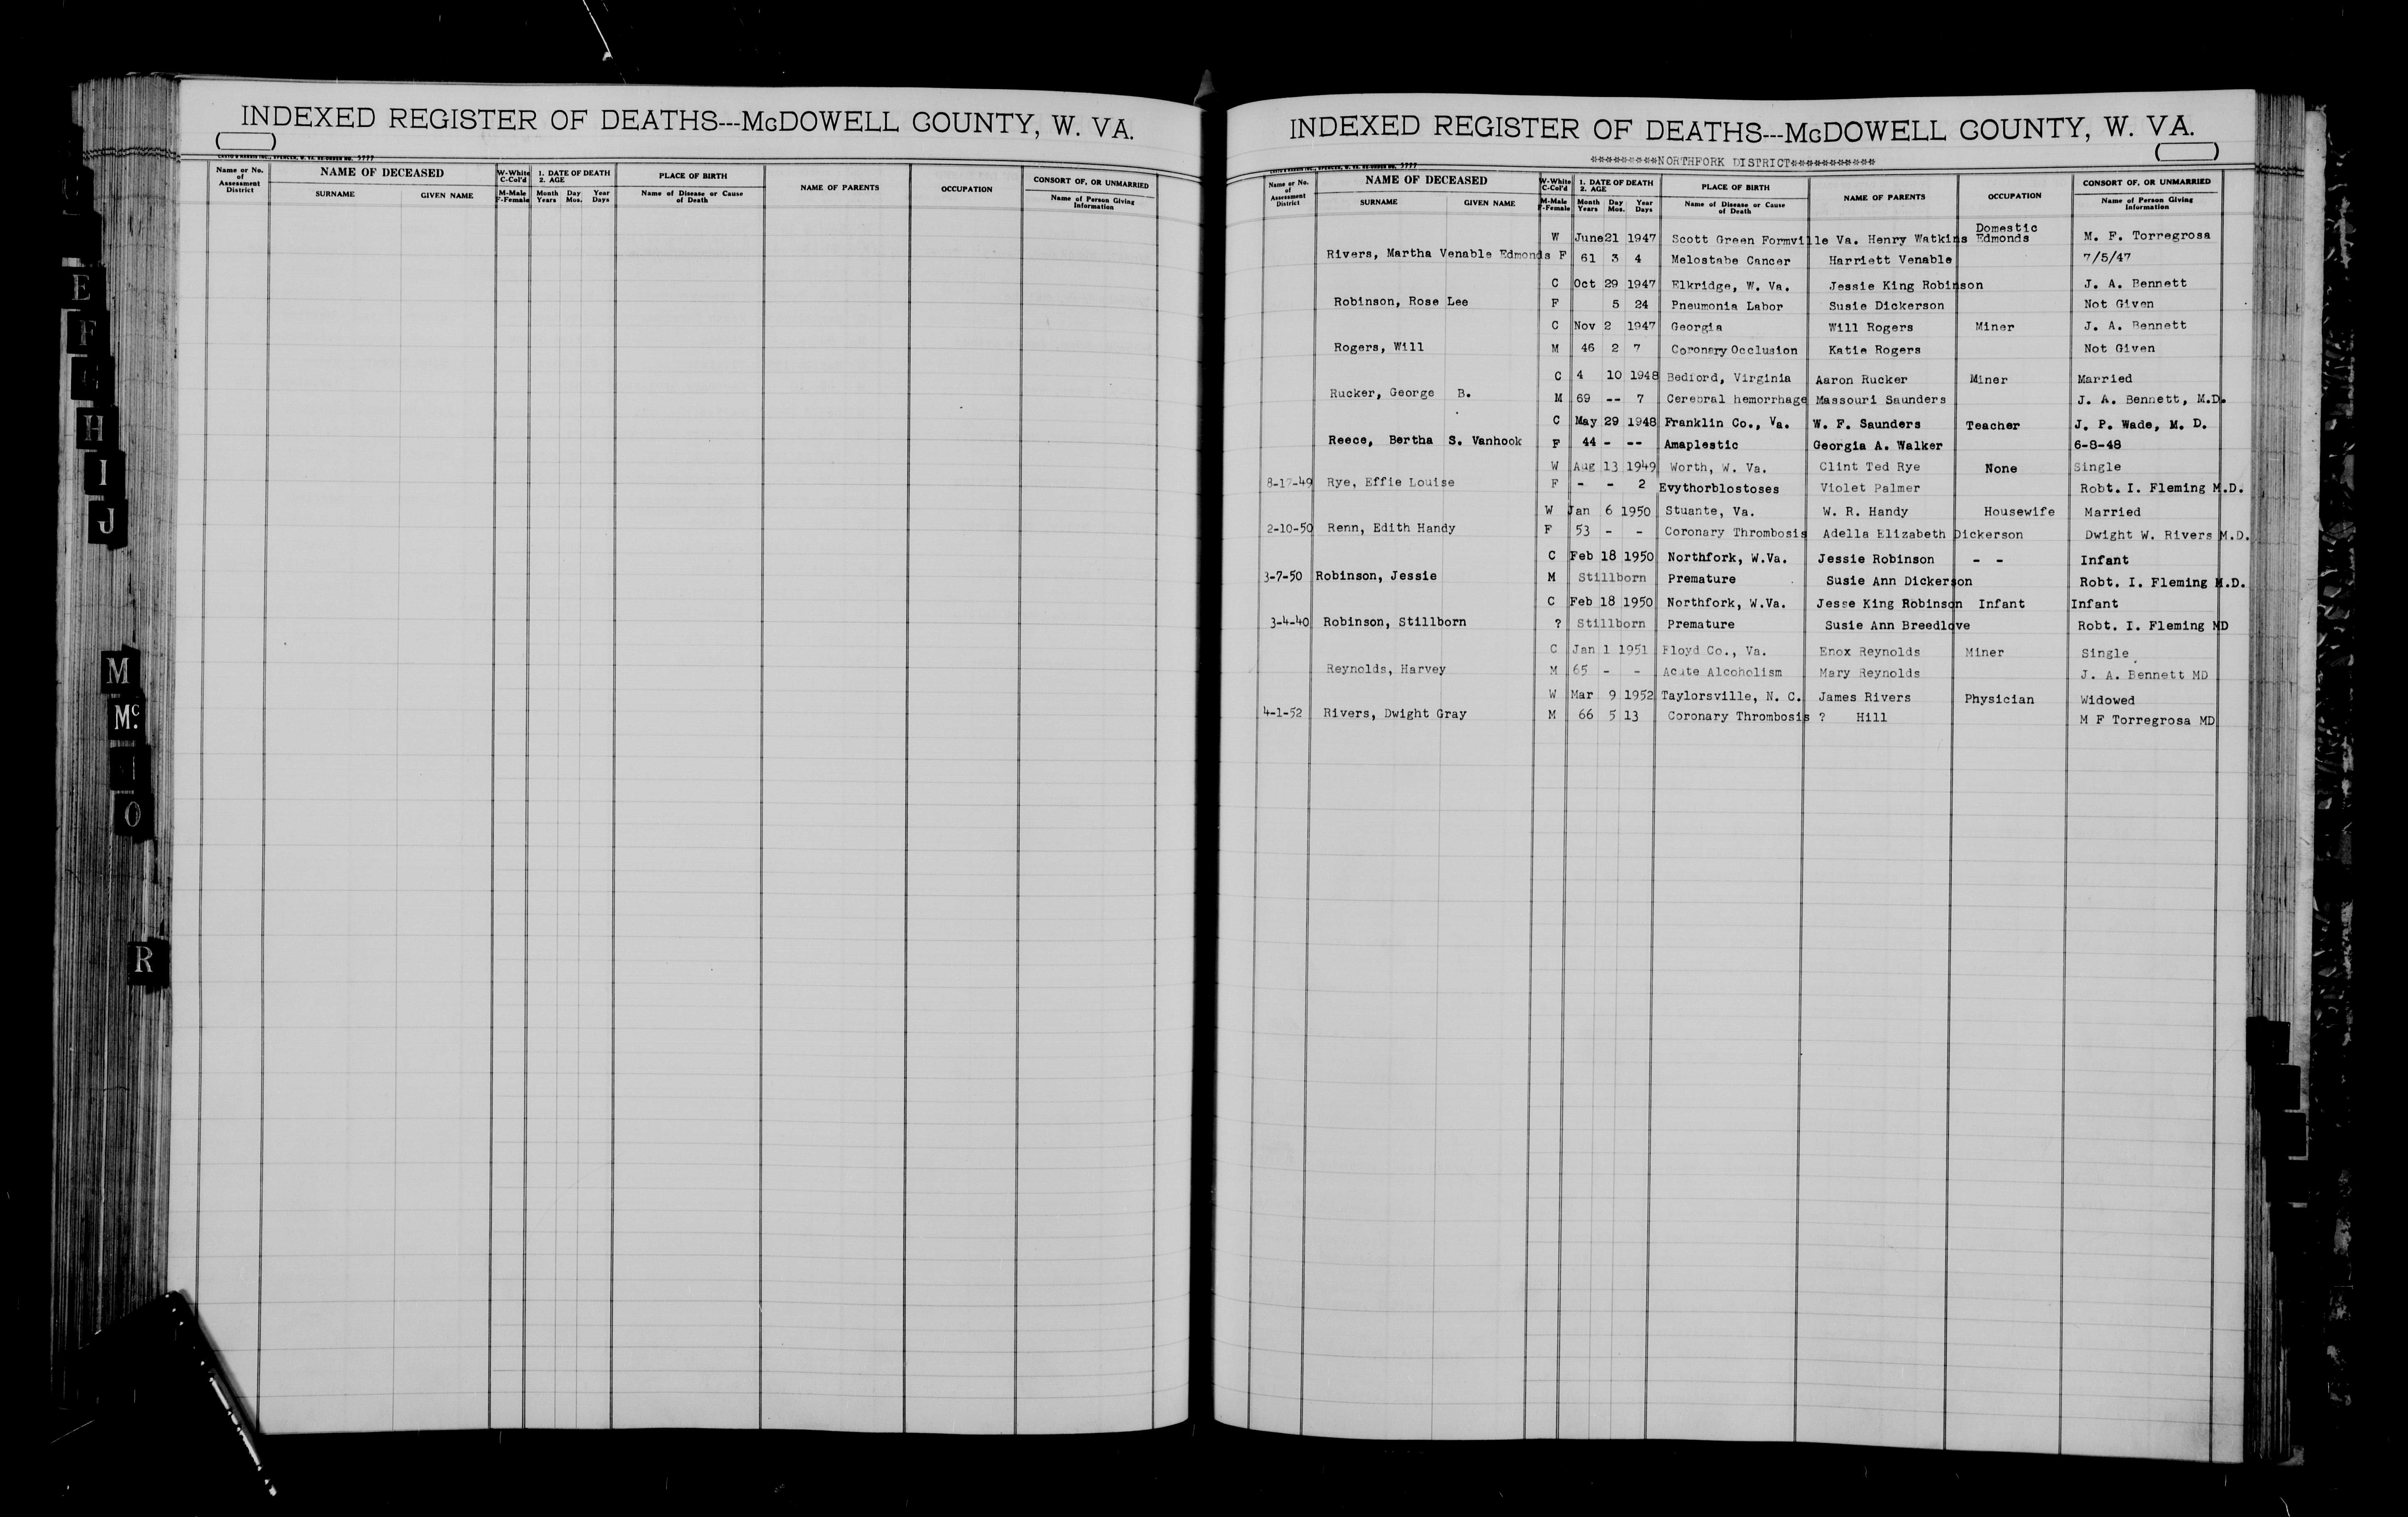 INDEXED REGISTER OF DEATHS---McDOWELL COUNTY, W. VA.
Name or No. of Assessment District
NAME OF DECEASED
SURNAME GIVEN NAME
W-White C-Col'd
M-Male F-Female
1. DATE OF DEATH
2. AGE
Month Day Year
Years Mos. Days
PLACE OF BIRTH
Name of Disease or Cause of Death
NAME OF PARENTS
OCCUPATION
CONSORT OF, OR UNMARRIED
Name of Person Giving Information
E
F
H
I
J
M
Mc.
O
R
INDEXED REGISTER OF DEATHS---McDOWELL COUNTY, W. VA.
*********NORTHFORK DISTRICT***********
Name or No. of Assessment District
NAME OF DECEASED
SURNAME GIVEN NAME
W-White C-Col'd
M-Male F-Female
1. DATE OF DEATH
2. AGE
Month Day Year
Years Mos. Days
PLACE OF BIRTH
Name of Disease or Cause of Death
NAME OF PARENTS
OCCUPATION
CONSORT OF, OR UNMARRIED
Name of Person Giving Information
Domestic
W June 21 1947 Scott Green Formville Va. Henry Watkins Edmonds M. F. Torregrosa
Rivers, Martha Venable Edmonds F 61 3 4 Melostabe Cancer Harriett Venable 7/5/47
C Oct 29 1947 Elkridge, W. Va. Jessie King Robinson J. A. Bennett
Robinson, Rose Lee F 5 24 Pneumonia Labor Susie Dickerson Not Given
C Nov 2 1947 Georgia Will Rogers Miner J. A. Bennett
Rogers, Will M 46 2 7 Coronary Occlusion Katie Rogers Not Given
C 4 10 1948 Bedford, Virginia Aaron Rucker Miner Married
Rucker, George B. M 69 -- 7 Cerebral hemorrhage Massouri Saunders J. A. Bennett, M.D.
C May 29 1948 Franklin Co., Va. W. F. Saunders Teacher J. P. Wade, M. D.
Reece, Bertha S. Vanhook F 44 - -- Amaplestic Georgia A. Walker 6-8-48
W Aug 13 1949 Worth, W. Va. Clint Ted Rye None Single
8-17-49 Rye, Effie Louise F - - 2 Evythorblostoses Violet Palmer Robt. I. Fleming M.D.
W Jan 6 1950 Stuante, Va. W. R. Handy Housewife Married
2-10-50 Renn, Edith Handy F 53 - - Coronary Thrombosis Adella Elizabeth Dickerson Dwight W. Rivers M.D.
C Feb 18 1950 Northfork, W.Va. Jessie Robinson - - Infant
3-7-50 Robinson, Jessie M Stillborn Premature Susie Ann Dickerson Robt. I. Fleming M.D.
C Feb 18 1950 Northfork, W.Va. Jesse King Robinson Infant Infant
3-4-40 Robinson, Stillborn ? Stillborn Premature Susie Ann Breedlove Robt. I. Fleming MD
C Jan 1 1951 Floyd Co., Va. Enox Reynolds Miner Single
Reynolds, Harvey M 65 - - Acute Alcoholism Mary Reynolds J. A. Bennett MD
W Mar 9 1952 Taylorsville, N. C. James Rivers Physician Widowed
4-1-52 Rivers, Dwight Gray M 66 5 13 Coronary Thrombosis ? Hill M F Torregrosa MD